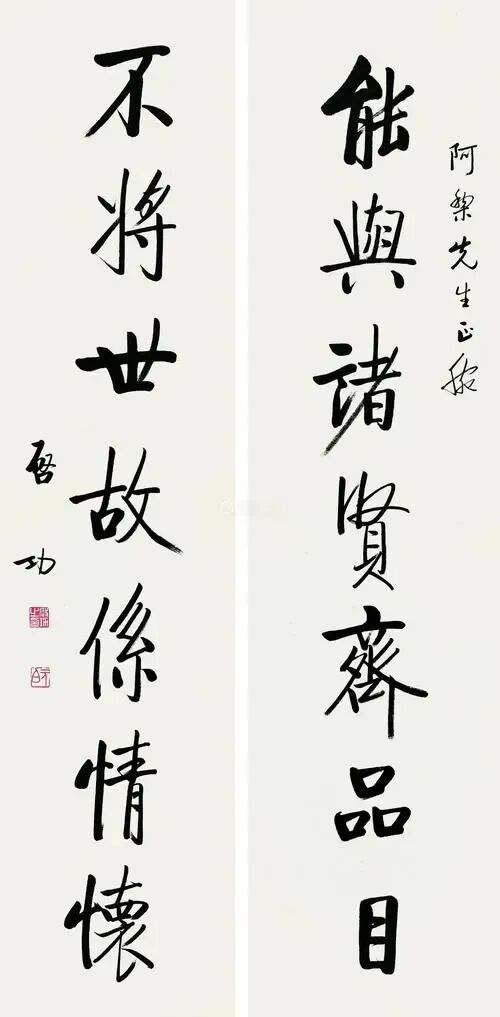 阿黎先生正腕
能與諸賢齊品目
不將世故係情懷
啓功